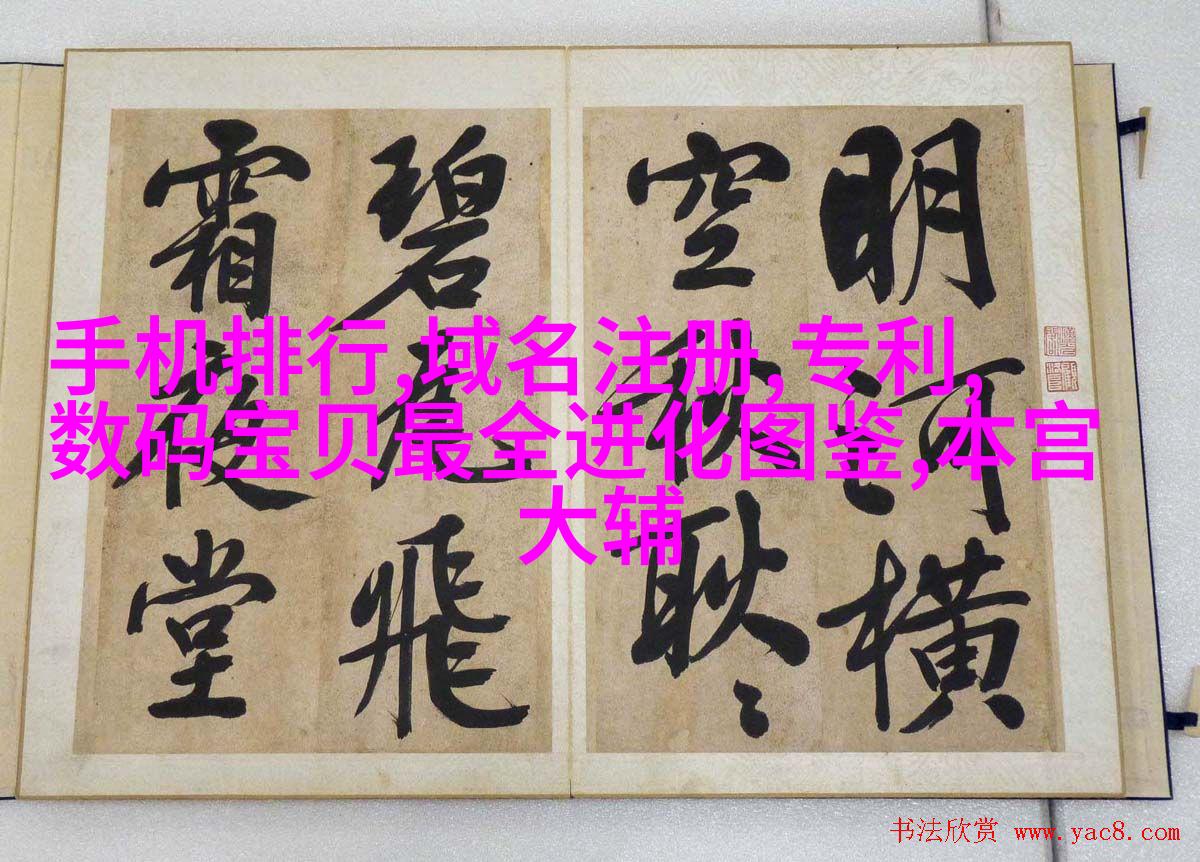 手机排行,域名注册,专利,
数码宝贝最全进化图鉴,本宫
大辅
明河橫
空秋耿〻
碧飛
霜夜堂
书法欣赏 www.yac8.com